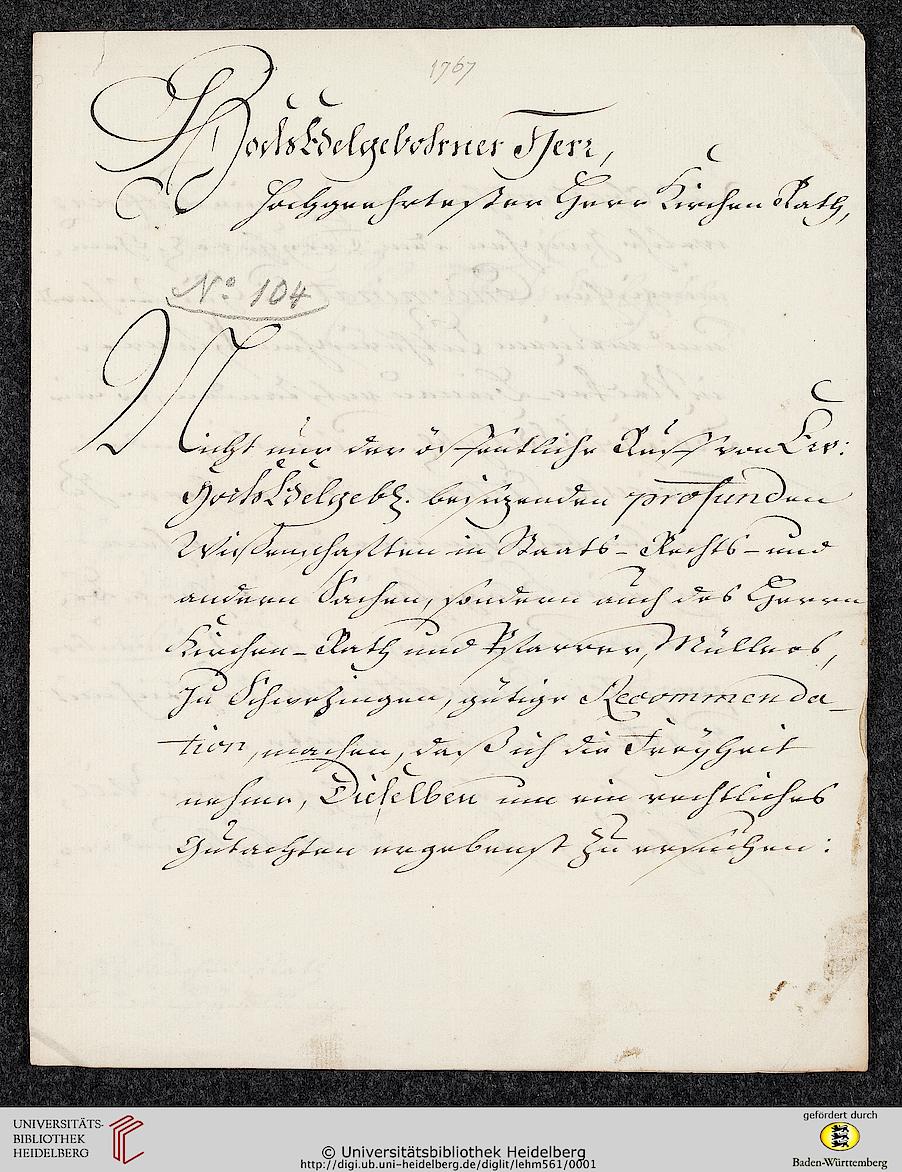 1767
HochEdelgebohrner Herr,
Hochgeehrtester Herr Kirchen Rath,
No: 104
Nicht nur der öffentliche Ruff von Ew:
HochEdelgebh. besizenden profunden
Wissenschafften in Staats- Rechts- und
andern Sachen, sondern auch des Herrn
Kirchen-Rath und Pfarrer, Müllers,
zu Schwezingen, gütige Recommenda-
tion, machen, daß ich die Freyheit
nehme, Dieselben um ein rechtliches
Gutachten ergebenst zu ersuchen:
UNIVERSITÄTS-
BIBLIOTHEK
HEIDELBERG
© Universitätsbibliothek Heidelberg
http://digi.ub.uni-heidelberg.de/diglit/lehm561/0001
gefördert durch
Baden-Württemberg